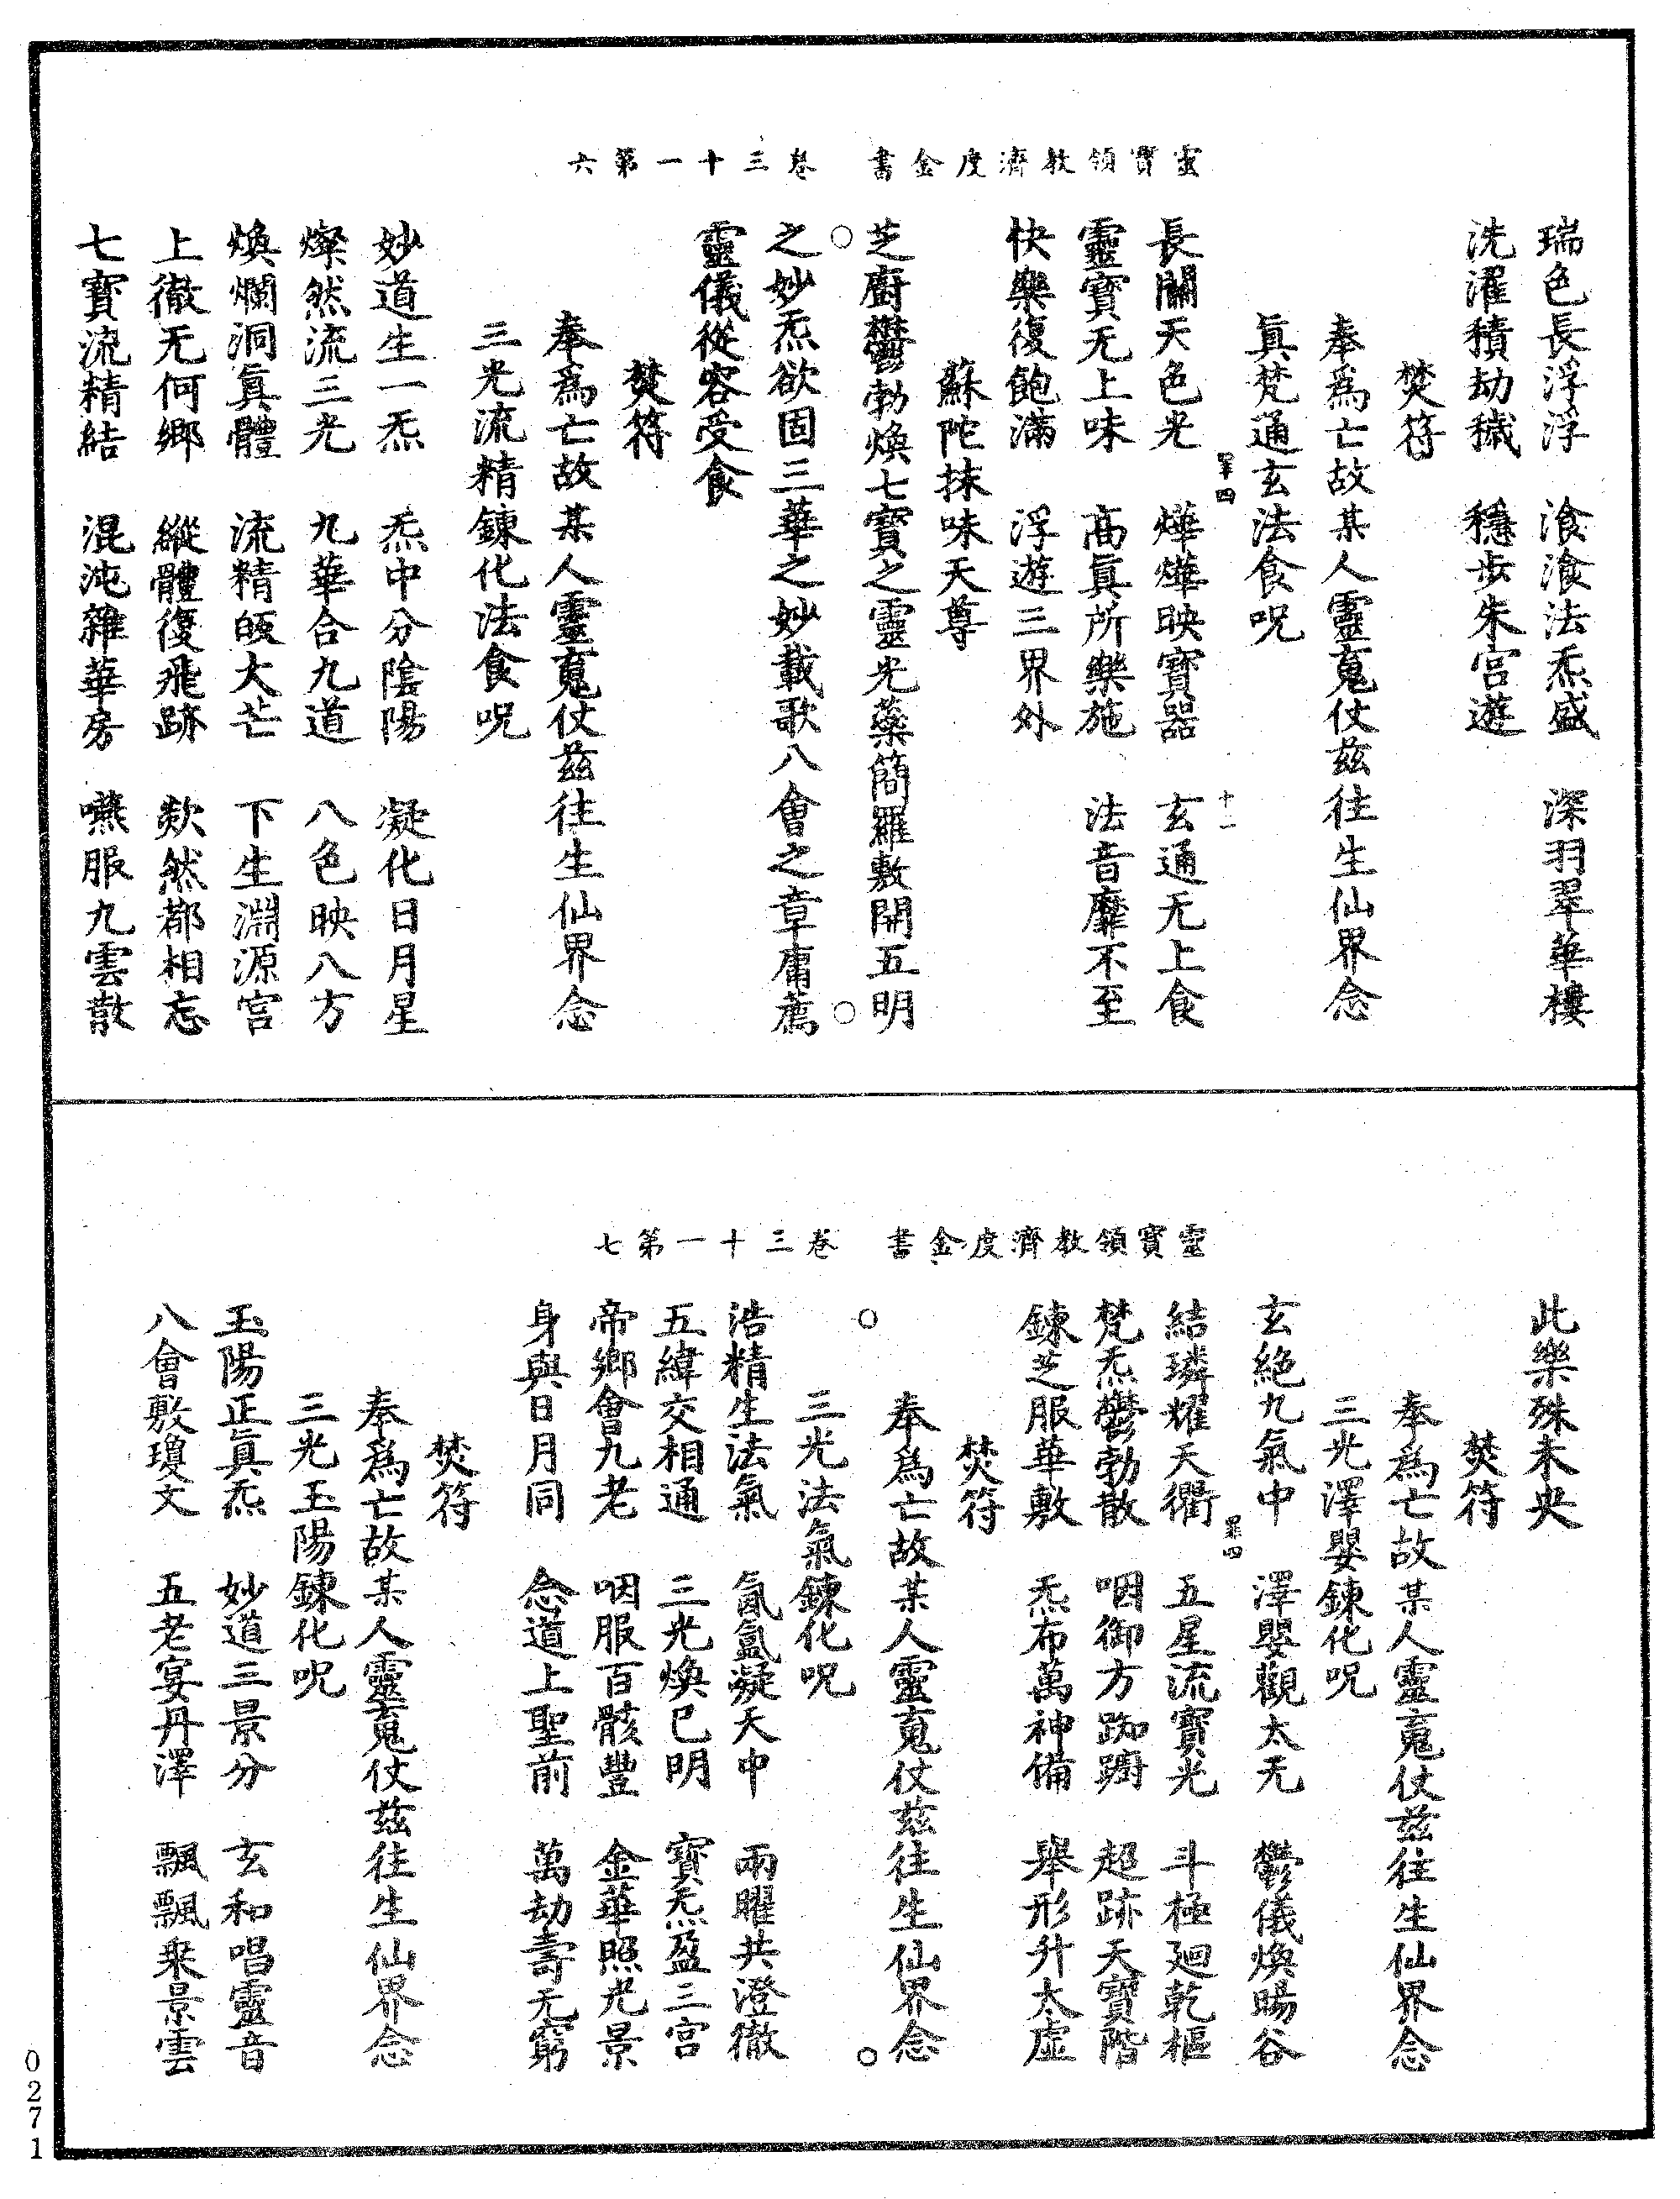 靈寶領教濟度金書　卷三十一第六
瑞色長浮浮　飡飡法炁盛　深羽翠華樓
洗濯積劫穢　穩步朱宮遊
焚符
奉爲亡故某人靈䰟仗兹往生仙界念
眞梵通玄法食呪
長關天色光　燁燁映寶器　玄通无上食
靈寶无上味　高眞所樂施　法音靡不至
快樂復飽滿　浮遊三界外
蘇陀抹味天尊
芝廚鬱勃煥七寶之靈光蘂簡羅敷開五明
之妙炁欲固三華之妙載歌八會之章庸薦
靈儀從容受食
焚符
奉爲亡故某人靈䰟仗兹往生仙界念
三光流精鍊化法食呪
妙道生一炁　炁中分陰陽　凝化日月星
燦然流三光　九華合九道　八色映八方
煥爛洞眞體　流精皈大芒　下生淵源宮
上徹无何鄉　縱體復飛跡　欻然都相忘
七寶流精結　混沌雜華房　嚥服九雲散
十一
靈寶領教濟度金書　卷三十一第七
此樂殊未央
焚符
奉爲亡故某人靈䰟仗兹往生仙界念
三光澤嬰鍊化呪
玄絶九氣中　澤嬰觀太无　鬱儀煥暘谷
結璘耀天衢　五星流寶光　斗極廻乾樞
梵炁鬱勃散　咽御方踟蹰　超跡天寶階
鍊芝服華敷　炁布萬神備　舉形升太虛
焚符
奉爲亡故某人靈䰟仗兹往生仙界念
三光法氣鍊化呪
浩精生法氣　氤氳凝天中　兩曜共澄徹
五緯交相通　三光煥已明　寶炁盈三宮
帝鄉會九老　咽服百骸豐　金華照光景
身與日月同　念道上聖前　萬劫壽无窮
焚符
奉爲亡故某人靈䰟仗兹往生仙界念
三光玉陽鍊化呪
玉陽正眞炁　妙道三景分　玄和唱靈音
八會敷瓊文　五老宴丹澤　飄飄乘景雲
0271